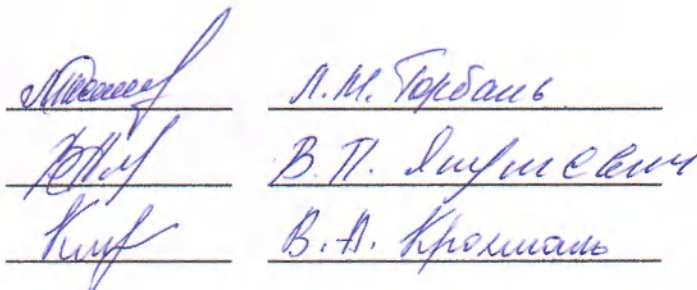 Л.М. Горбань
В.П. Янушевич
В.А. Крохмаль